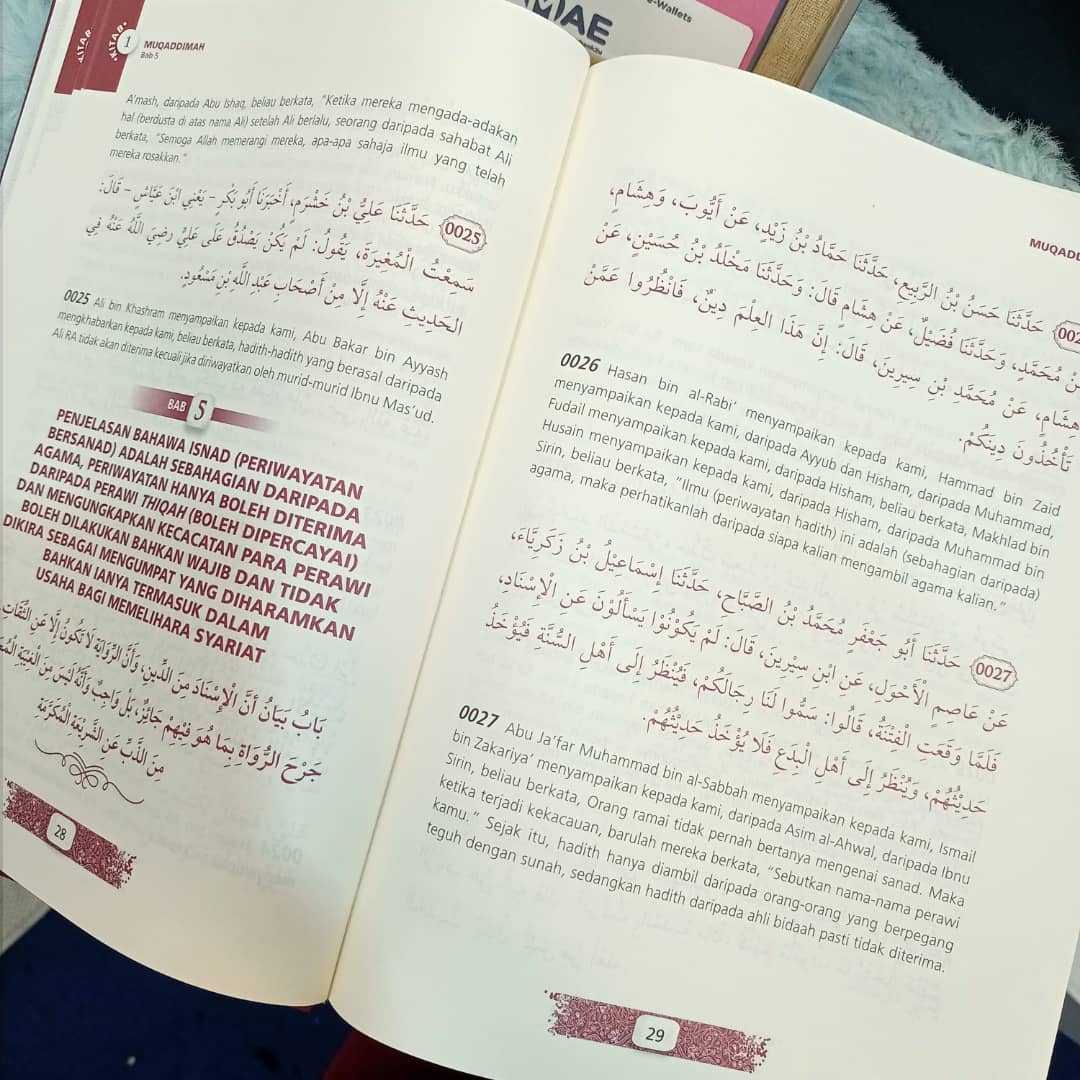 e-Wallets
MAE
KITAB
1
MUQADDIMAH
Bab 5
A'mash, daripada Abu Ishaq, beliau berkata, "Ketika mereka mengada-adakan
hal (berdusta di atas nama Ali) setelah Ali berlalu, seorang daripada sahabat Ali
berkata, "Semoga Allah memerangi mereka, apa-apa sahaja ilmu yang telah
mereka rosakkan."
0025 حَدَّثَنَا عَلِيُّ بْنُ خَشْرَمٍ، أَخْبَرَنَا أَبُو بَكْرٍ – يَعْنِي ابْنَ عَيَّاشٍ – قَالَ:
سَمِعْتُ الْمُغِيرَةَ، يَقُولُ: لَمْ يَكُنْ يَصْدُقُ عَلَى عَلِيٍّ رَضِيَ اللَّهُ عَنْهُ فِي
الْحَدِيثِ عَنْهُ إِلَّا مِنْ أَصْحَابِ عَبْدِ اللَّهِ بْنِ مَسْعُودٍ.
0025 Ali bin Khashram menyampaikan kepada kami, Abu Bakar bin Ayyash
mengkhabarkan kepada kami, beliau berkata, hadith-hadith yang berasal daripada
Ali RA tidak akan diterima kecuali jika diriwayatkan oleh murid-murid Ibnu Mas'ud.
BAB 5
PENJELASAN BAHAWA ISNAD (PERIWAYATAN
BERSANAD) ADALAH SEBAHAGIAN DARIPADA
AGAMA, PERIWAYATAN HANYA BOLEH DITERIMA
DARIPADA PERAWI THIQAH (BOLEH DIPERCAYAI)
DAN MENGUNGKAPKAN KECACATAN PARA PERAWI
BOLEH DILAKUKAN BAHKAN WAJIB DAN TIDAK
DIKIRA SEBAGAI MENGUMPAT YANG DIHARAMKAN
BAHKAN IANYA TERMASUK DALAM
USAHA BAGI MEMELIHARA SYARIAT
بَابُ بَيَانُ أَنَّ الْإِسْنَادَ مِنَ الدِّينِ، وَأَنَّ الرِّوَايَةَ لَا تَكُونُ إِلَّا عَنِ الثِّقَاتِ
جَرْحَ الرُّوَاةِ بِمَا هُوَ فِيهِمْ جَائِزٌ، بَلْ وَاجِبٌ وَأَنَّهُ لَيْسَ مِنَ الْغِيبَةِ
مِنَ الذَّبِّ عَنِ الشَّرِيعَةِ الْمُكَرَّمَةِ
28
MUQADD
حَدَّثَنَا حَسَنُ بْنُ الرَّبِيعِ، حَدَّثَنَا حَمَّادُ بْنُ زَيْدٍ، عَنْ أَيُّوبَ، وَهِشَامٍ،
مُحَمَّدٍ، وَحَدَّثَنَا فُضَيْلٌ، عَنْ هِشَامٍ قَالَ: وَحَدَّثَنَا مَخْلَدُ بْنُ حُسَيْنٍ، عَنْ
هِشَامٍ، عَنْ مُحَمَّدِ بْنِ سِيرِينَ، قَالَ: إِنَّ هَذَا الْعِلْمَ دِينٌ، فَانْظُرُوا عَمَّنْ
تَأْخُذُونَ دِينَكُمْ.
0026 Hasan bin al-Rabi' menyampaikan kepada kami, Hammad bin Zaid
menyampaikan kepada kami, daripada Ayyub dan Hisham, daripada Muhammad,
Fudail menyampaikan kepada kami, daripada Hisham, beliau berkata, Makhlad bin
Husain menyampaikan kepada kami, daripada Hisham, daripada Muhammad bin
Sirin, beliau berkata, "Ilmu (periwayatan hadith) ini adalah (sebahagian daripada)
agama, maka perhatikanlah daripada siapa kalian mengambil agama kalian."
0027 حَدَّثَنَا أَبُو جَعْفَرٍ مُحَمَّدُ بْنُ الصَّبَّاحِ، حَدَّثَنَا إِسْمَاعِيلُ بْنُ زَكَرِيَّاءَ،
عَنْ عَاصِمٍ الْأَحْوَلِ، عَنِ ابْنِ سِيرِينَ، قَالَ: لَمْ يَكُونُوا يَسْأَلُونَ عَنِ الْإِسْنَادِ،
فَلَمَّا وَقَعَتِ الْفِتْنَةُ، قَالُوا: سَمُّوا لَنَا رِجَالَكُمْ، فَيُنْظَرُ إِلَى أَهْلِ السُّنَّةِ فَيُؤْخَذُ
حَدِيثُهُمْ، وَيُنْظَرُ إِلَى أَهْلِ الْبِدَعِ فَلَا يُؤْخَذُ حَدِيثُهُمْ.
0027 Abu Ja'far Muhammad bin al-Sabbah menyampaikan kepada kami, Ismail
bin Zakariya' menyampaikan kepada kami, daripada Asim al-Ahwal, daripada Ibnu
Sirin, beliau berkata, Orang ramai tidak pernah bertanya mengenai sanad. Maka
ketika terjadi kekacauan, barulah mereka berkata, "Sebutkan nama-nama perawi
kamu." Sejak itu, hadith hanya diambil daripada orang-orang yang berpegang
teguh dengan sunah, sedangkan hadith daripada ahli bidaah pasti tidak diterima.
29